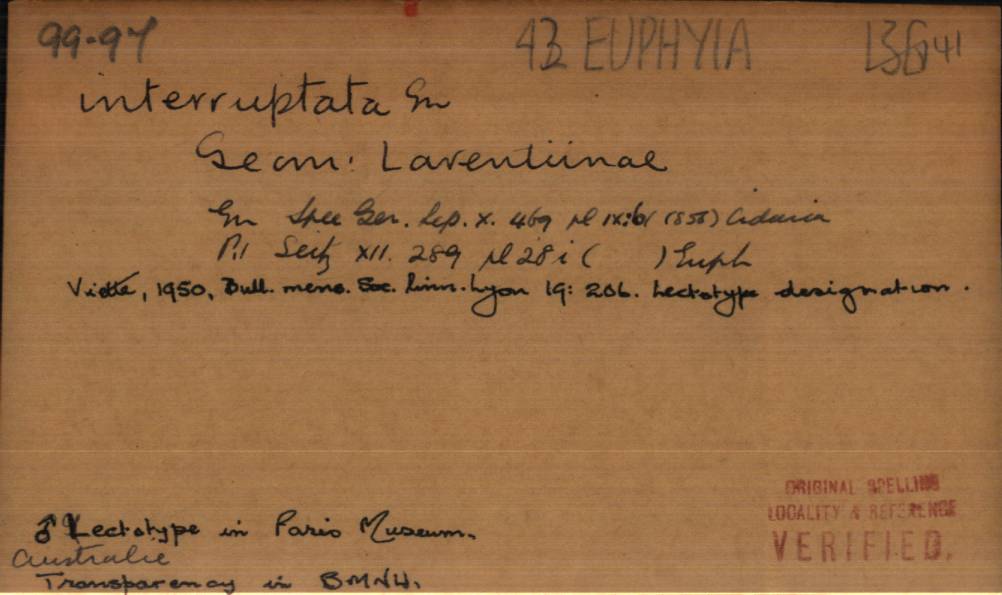 99-97 43 EUPHYIA 41
interruptata Gn
Geom: Larentiinae
Gn Spec Gen. Lep. x. 469 pl ix: 6 (1858) Cidaria
Pr Seitz XII. 289 pl 28 i ( ) Euph
Viette, 1950, Bull. mens. Soc. Linn. Lyon 19: 206. Lectotype designation.
ORIGINAL SPELLING
LOCALITY & REFERENCE
VERIFIED.
♂ Lectotype in Paris Museum.
Australie
Transparency in BMNH.